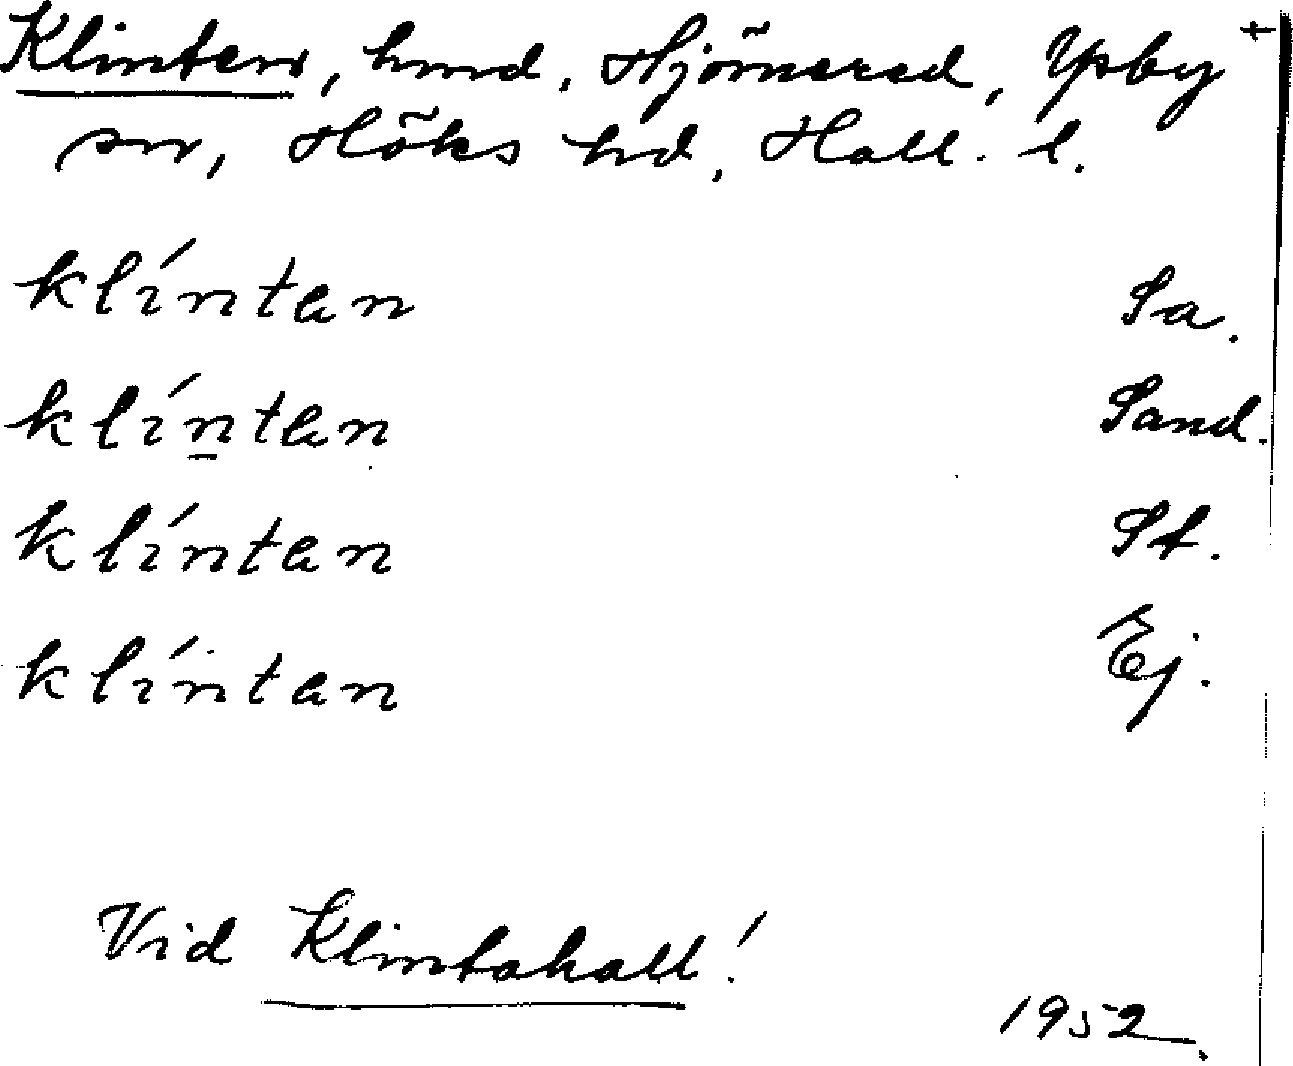 Klinten, hmd, Hjörnered, Ysby +
sn, Höks hd, Hall. l.
klíntan Sa.
klíntan Sand.
klíntan St.
klíntan Ej.
Vid Klintahall!
1952.